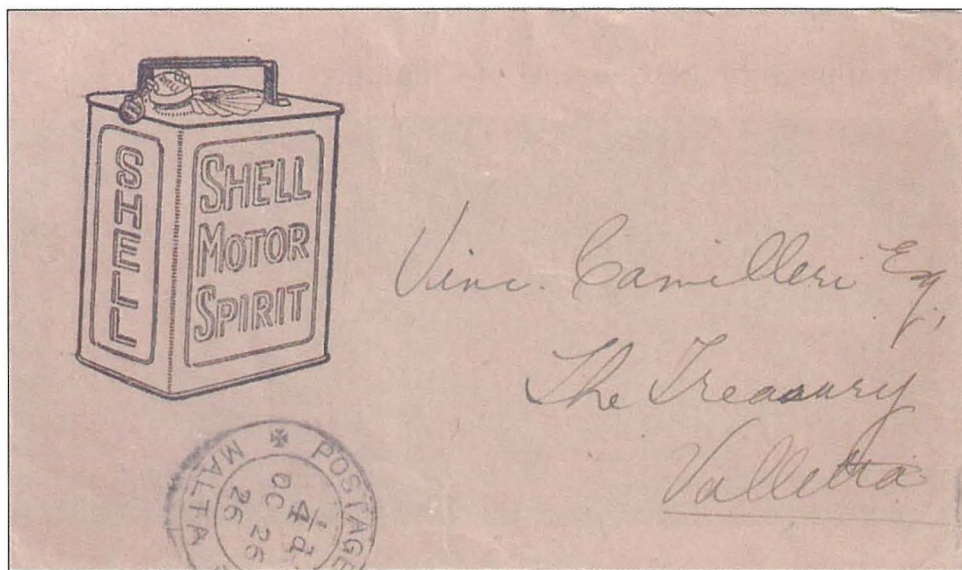 SHELL
SHELL
MOTOR
SPIRIT
Vinc. Camilleri Esq,
The Treasury
Valletta
POSTAGE
MALTA
1/4 d
OC 26
26